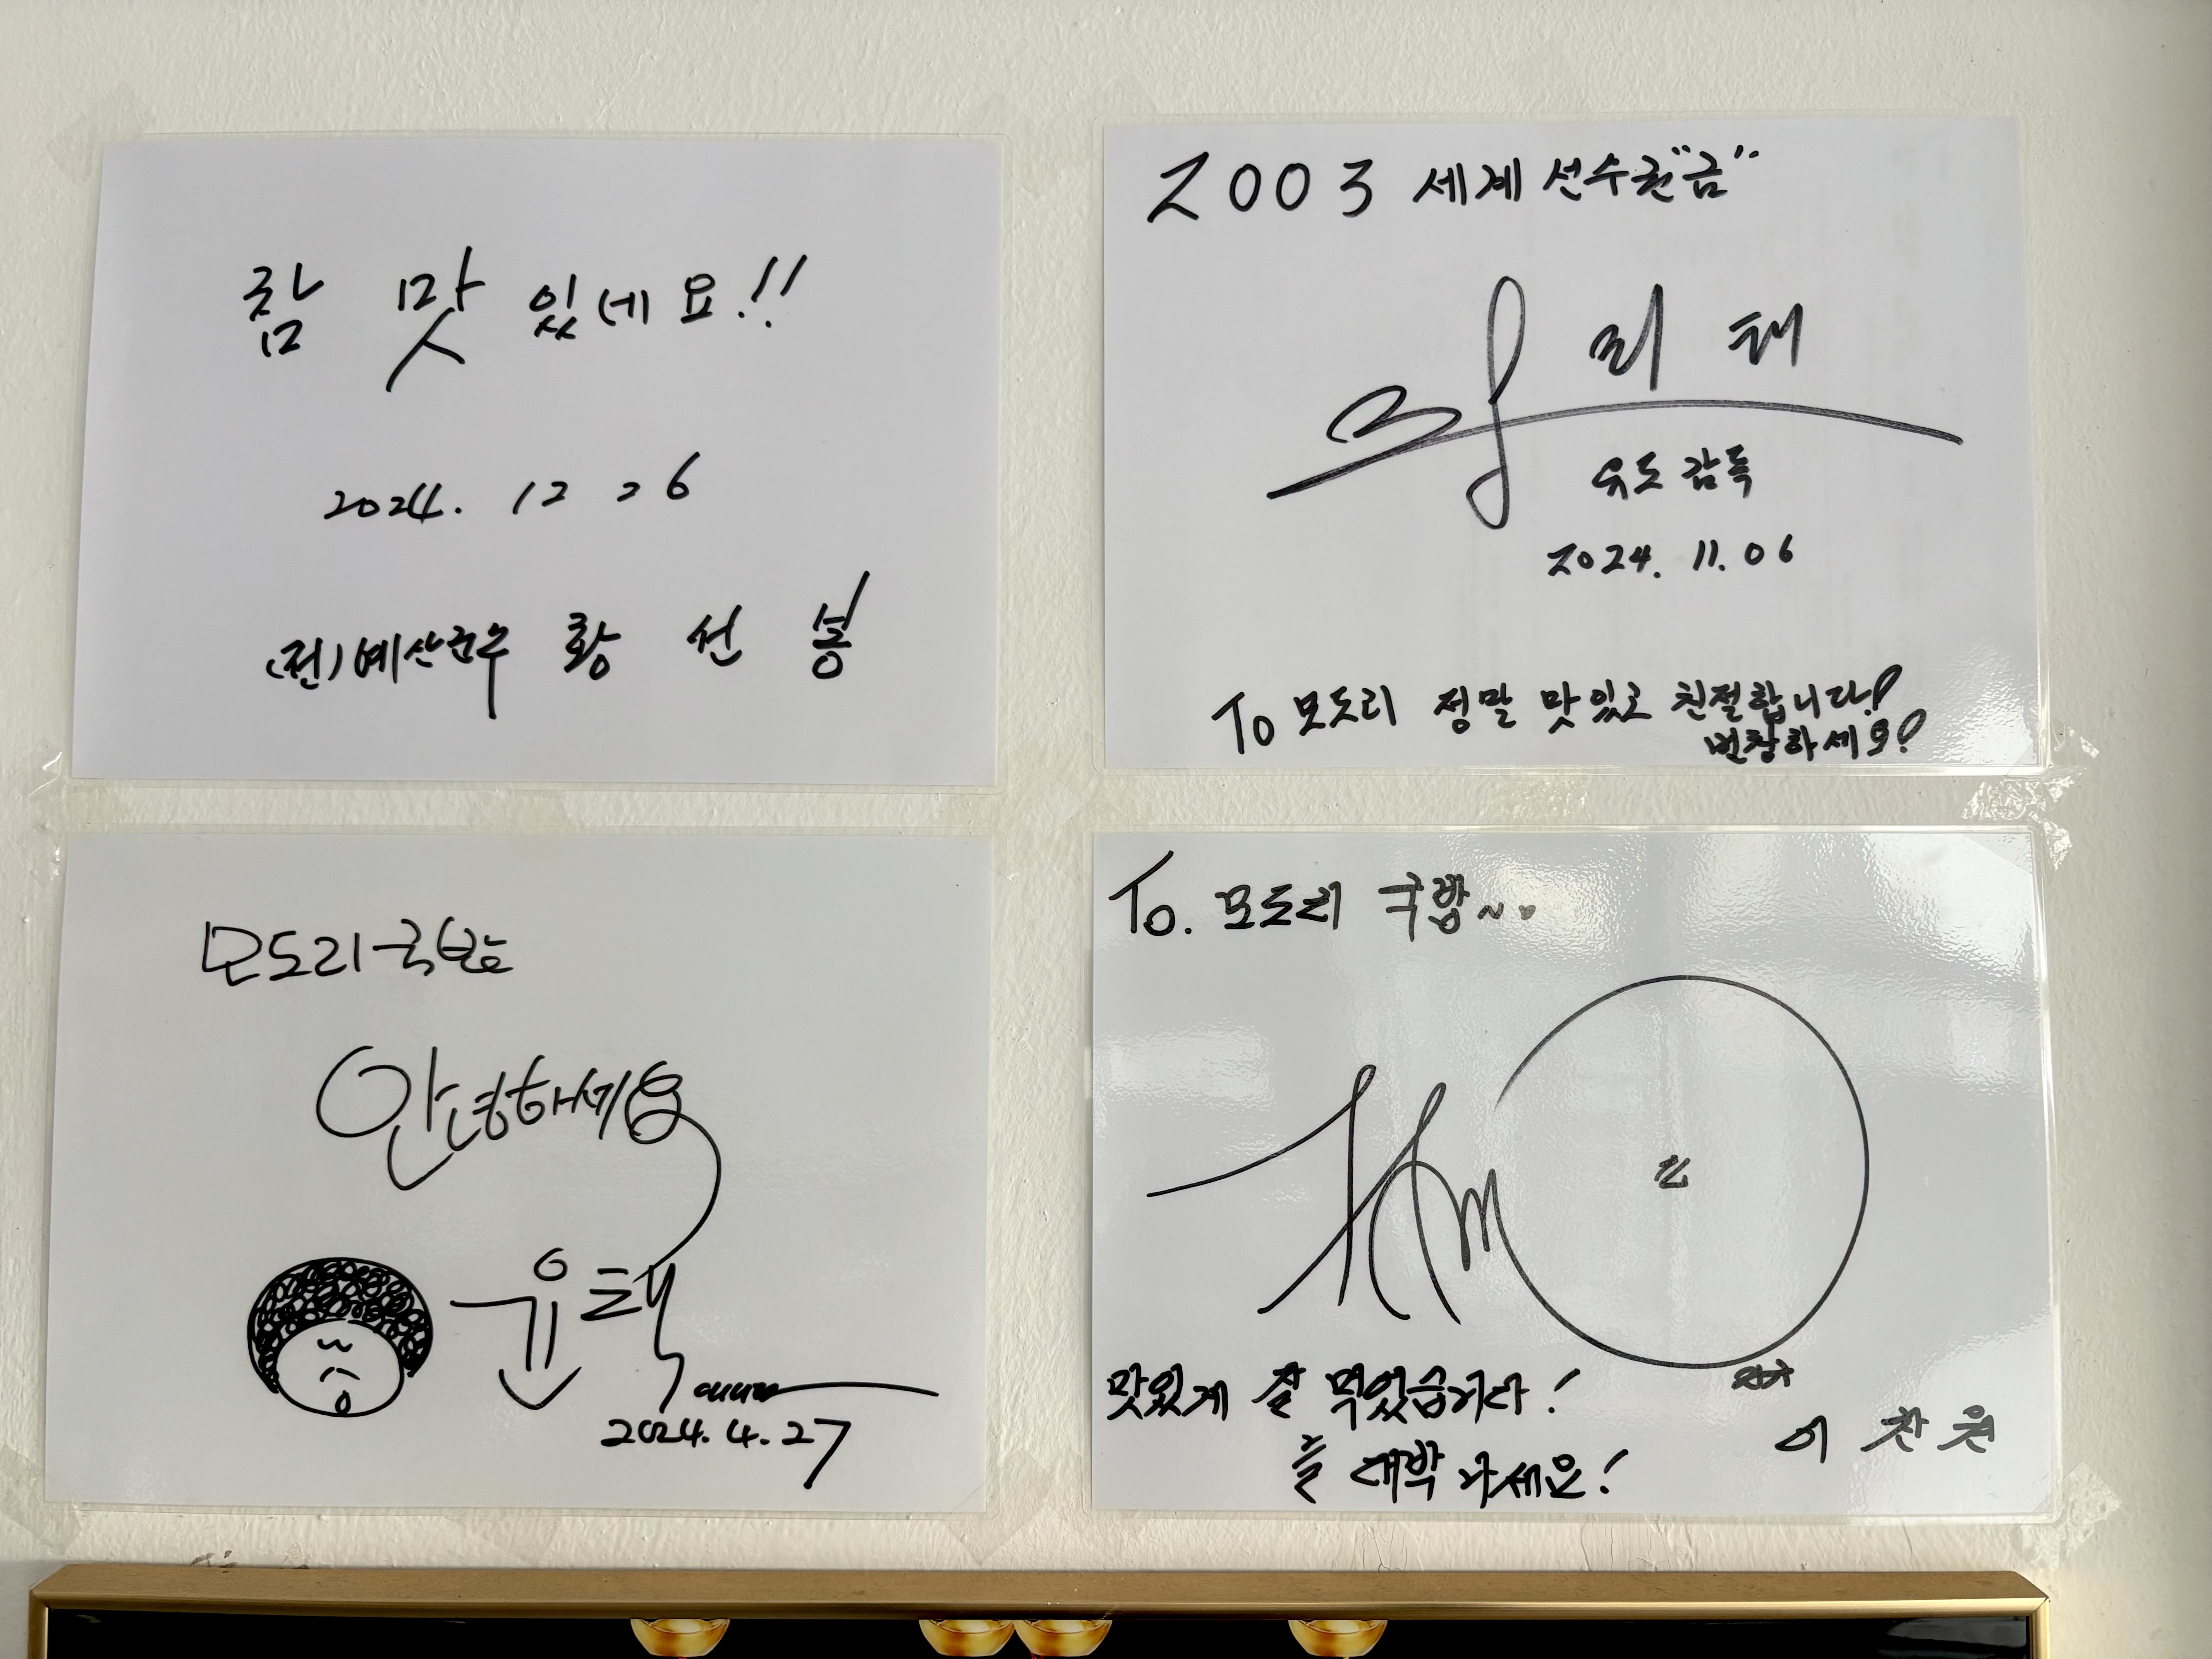 참 맛있네요!!
2024. 12 26
(전)예산군수 황선봉
2003 세계선수권"금"
황희태
유도감독
2024. 11. 06
To 모도리 정말 맛있고 친절합니다!
번창하세요!
모도리국밥
안녕하세요
유택
2024. 4. 27
To. 모도리 국밥~..
맛있게 잘 먹었습니다!
늘 대박 나세요!
이찬원